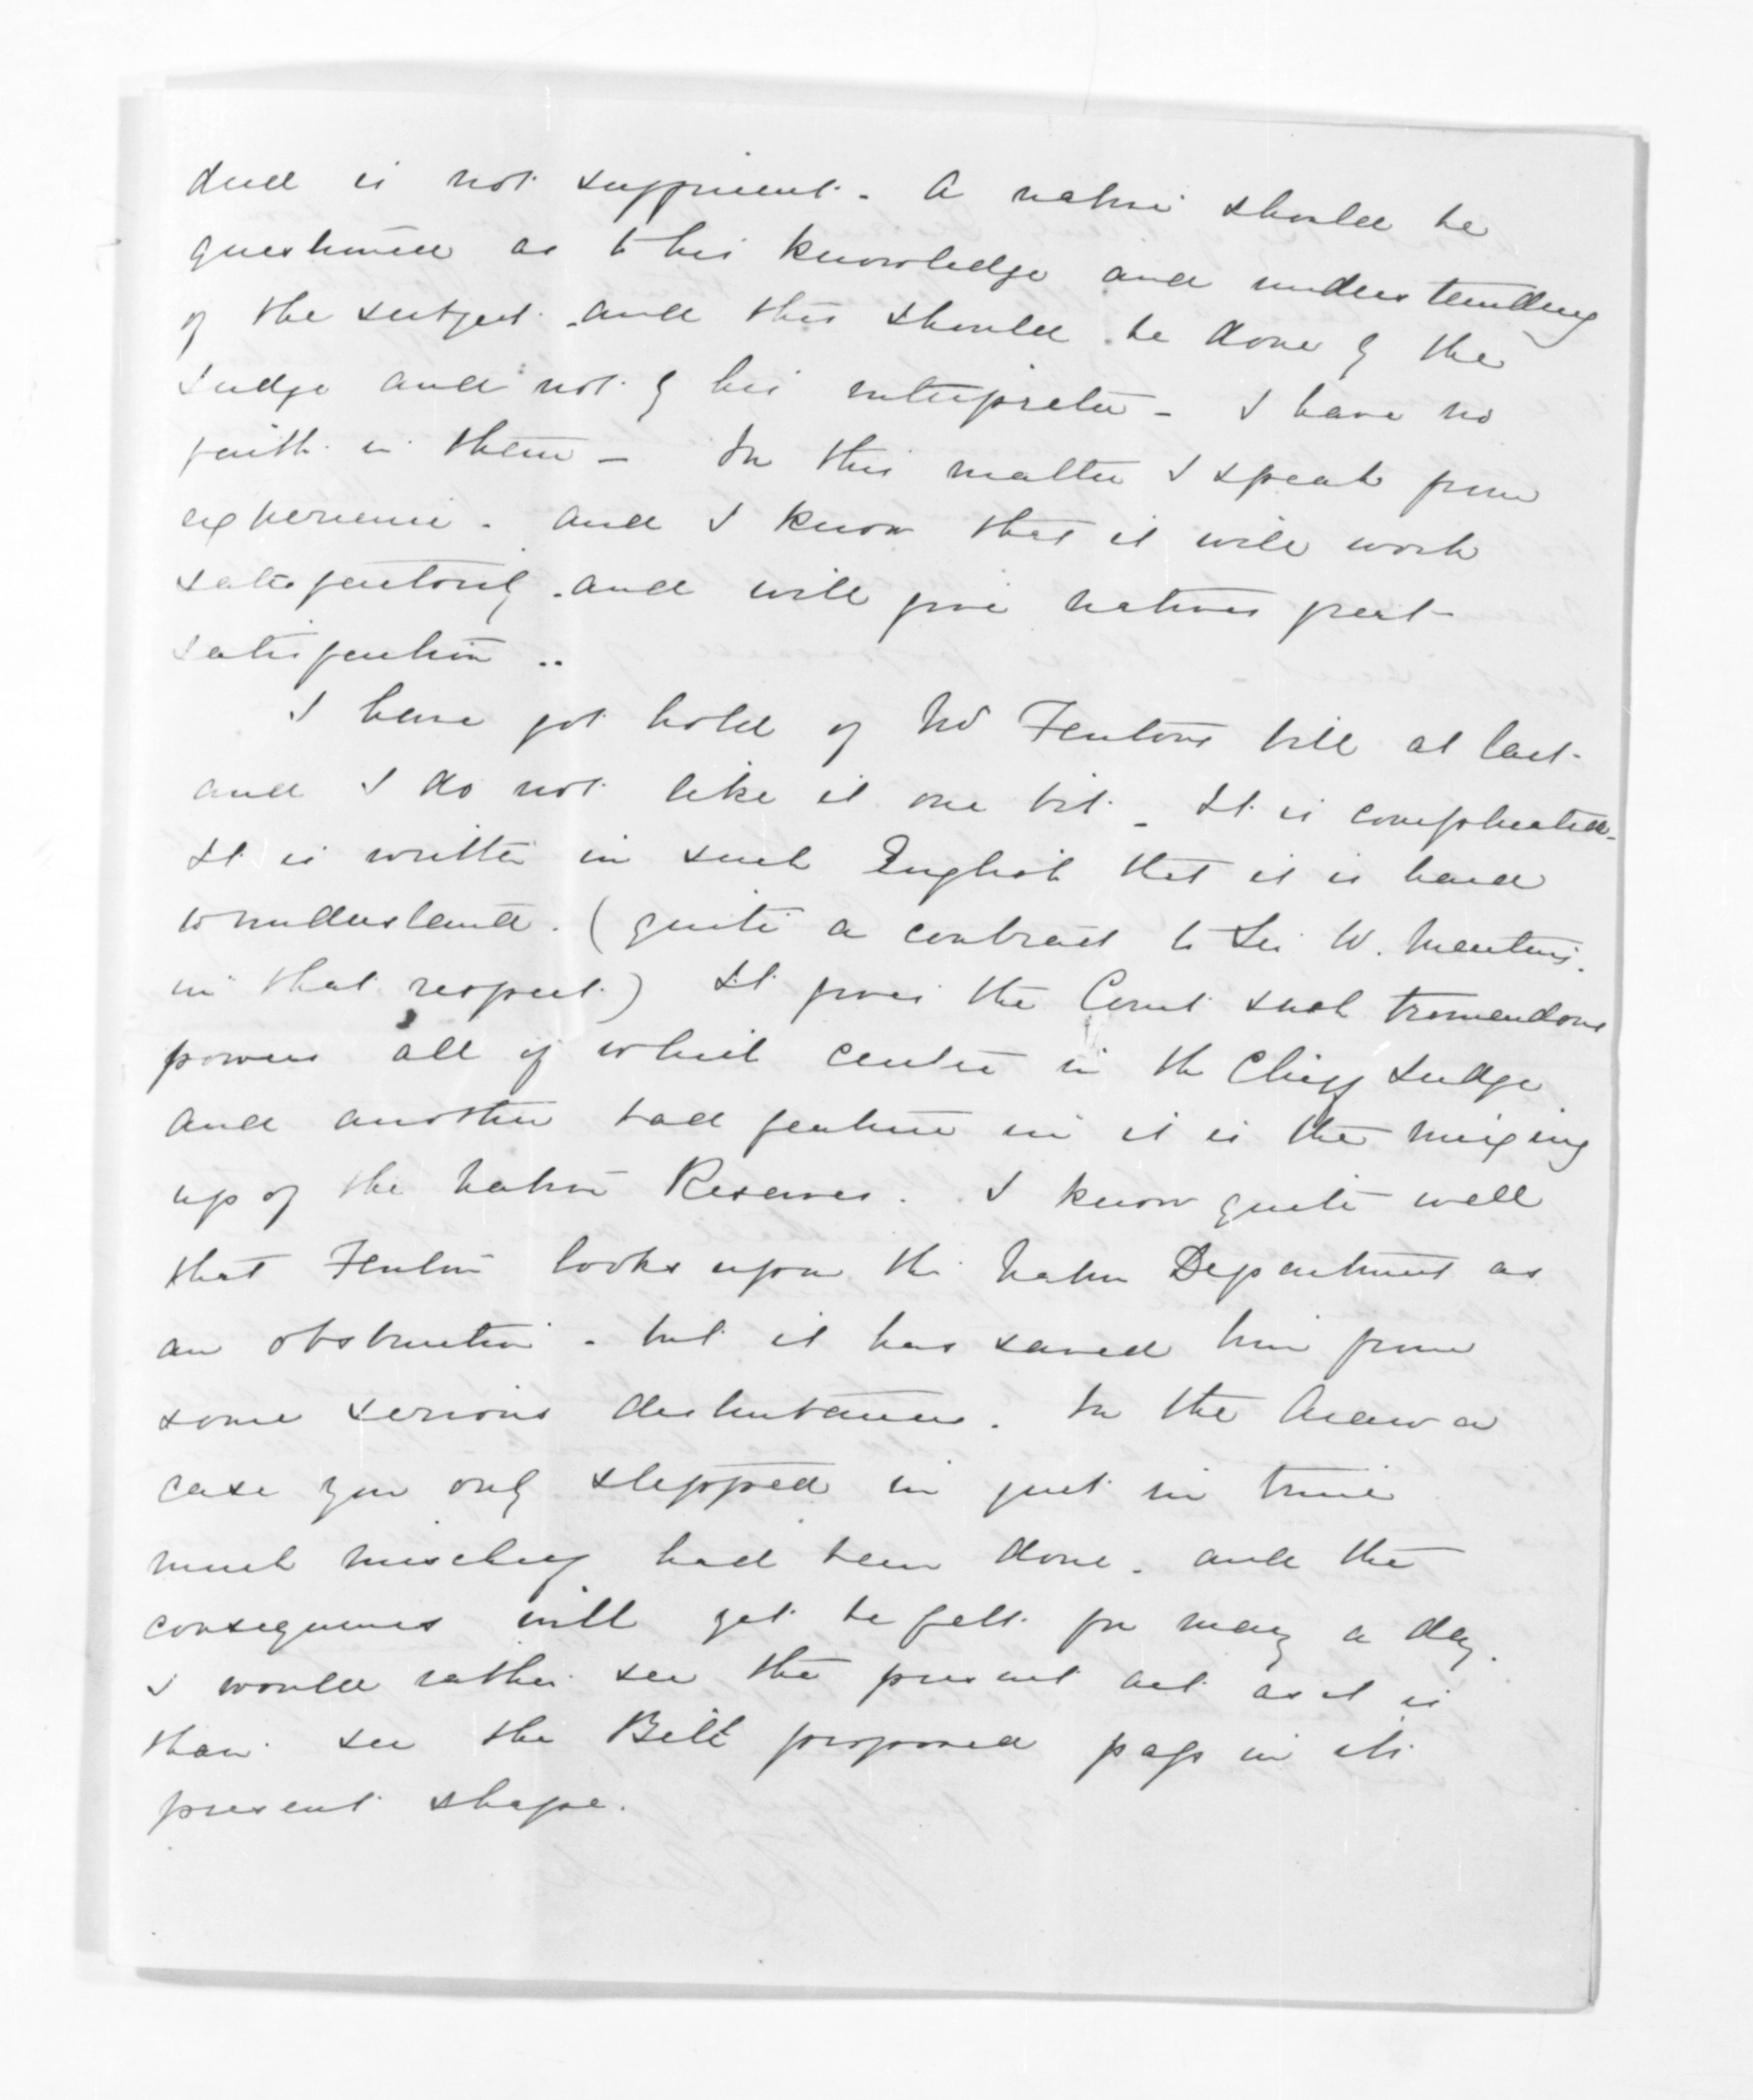 deed is not sufficient. A native should be
questioned as to his knowledge and understanding
of the subject and this should be done by the
Judge and not by his interpreter - I have no
faith in them - In this matter I speak from
experience. and I know that it will work
satisfactorily. and will give natives great
satisfaction ..
I have got hold of Mr Fentons bill at last.
and I do not like it one bit - It is complicated.
It is written in such English that it is hard
to understand. (quite a contrast to Sir W. Martins.
in that respect.) It gives the Court such tremendous
powers all of which center in the Chief Judge
and another bad feature in it is the mixing
up of the Native Reserves. I know quite well
that Fenton looks upon the Native Department as
an obstruction. but it has saved him from
some serious disturbances. In the Arawa
case you only stepped in just in time
much mischief had been done. and the
consequences will yet be felt for many a day.
I would rather see the present act as it is
than see the Bill proposed pass in its
present shape.